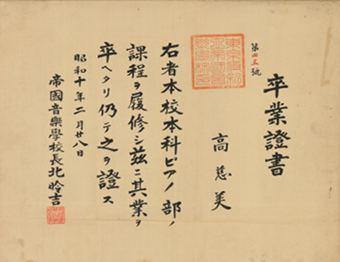 卒業證書
第四三號
高慈美
右者本校本科ピアノ部ノ
課程ヲ履修シ茲ニ其業ヲ
卒ヘタリ仍テ之ヲ證ス
昭和十年二月廿八日
帝國音樂學校長北昤吉